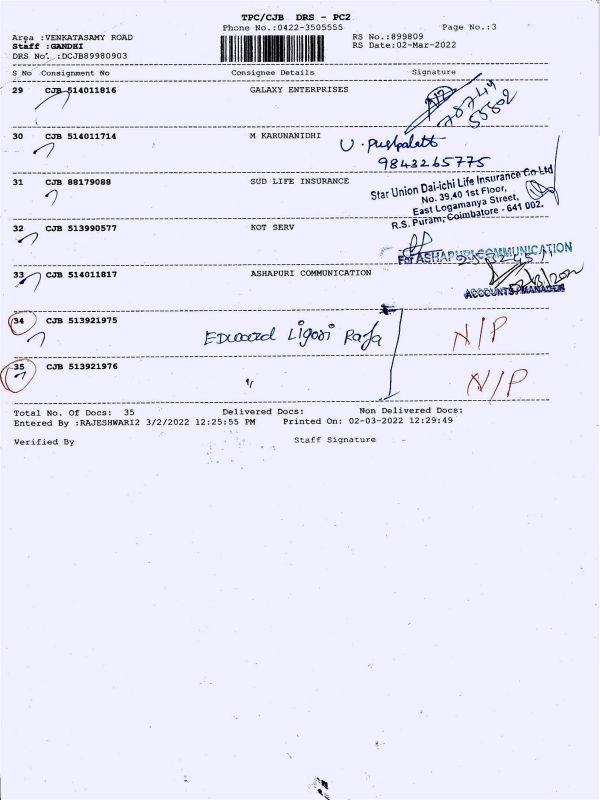 TPC/CJB DRS - PC2
Phone No.:0422-3505555 Page No.:3
Area :VENKATASAMY ROAD RS No.:899809
Staff :GANDHI RS Date:02-Mar-2022
DRS No. :DCJB89980903
S No Consignment No Consignee Details Signature
29 CJB 514011816 GALAXY ENTERPRISES
30 CJB 514011714 M KARUNANIDHI U. Pushpalatt
9843265775
31 CJB 88179088 SUD LIFE INSURANCE
Star Union Dai-ichi Life Insurance Co Ltd
No. 39,40 1st Floor,
East Logamanya Street,
R.S. Puram, Coimbatore - 641 002.
32 CJB 513990577 KOT SERV
For ASHAPURI COMMUNICATION
33 CJB 514011817 ASHAPURI COMMUNICATION
ACCOUNTS / MANAGER
34 CJB 513921975 Edward Ligori Raja N/P
35 CJB 513921976 " N/P
Total No. Of Docs: 35 Delivered Docs: Non Delivered Docs:
Entered By :RAJESHWARI2 3/2/2022 12:25:55 PM Printed On: 02-03-2022 12:29:49
Verified By Staff Signature